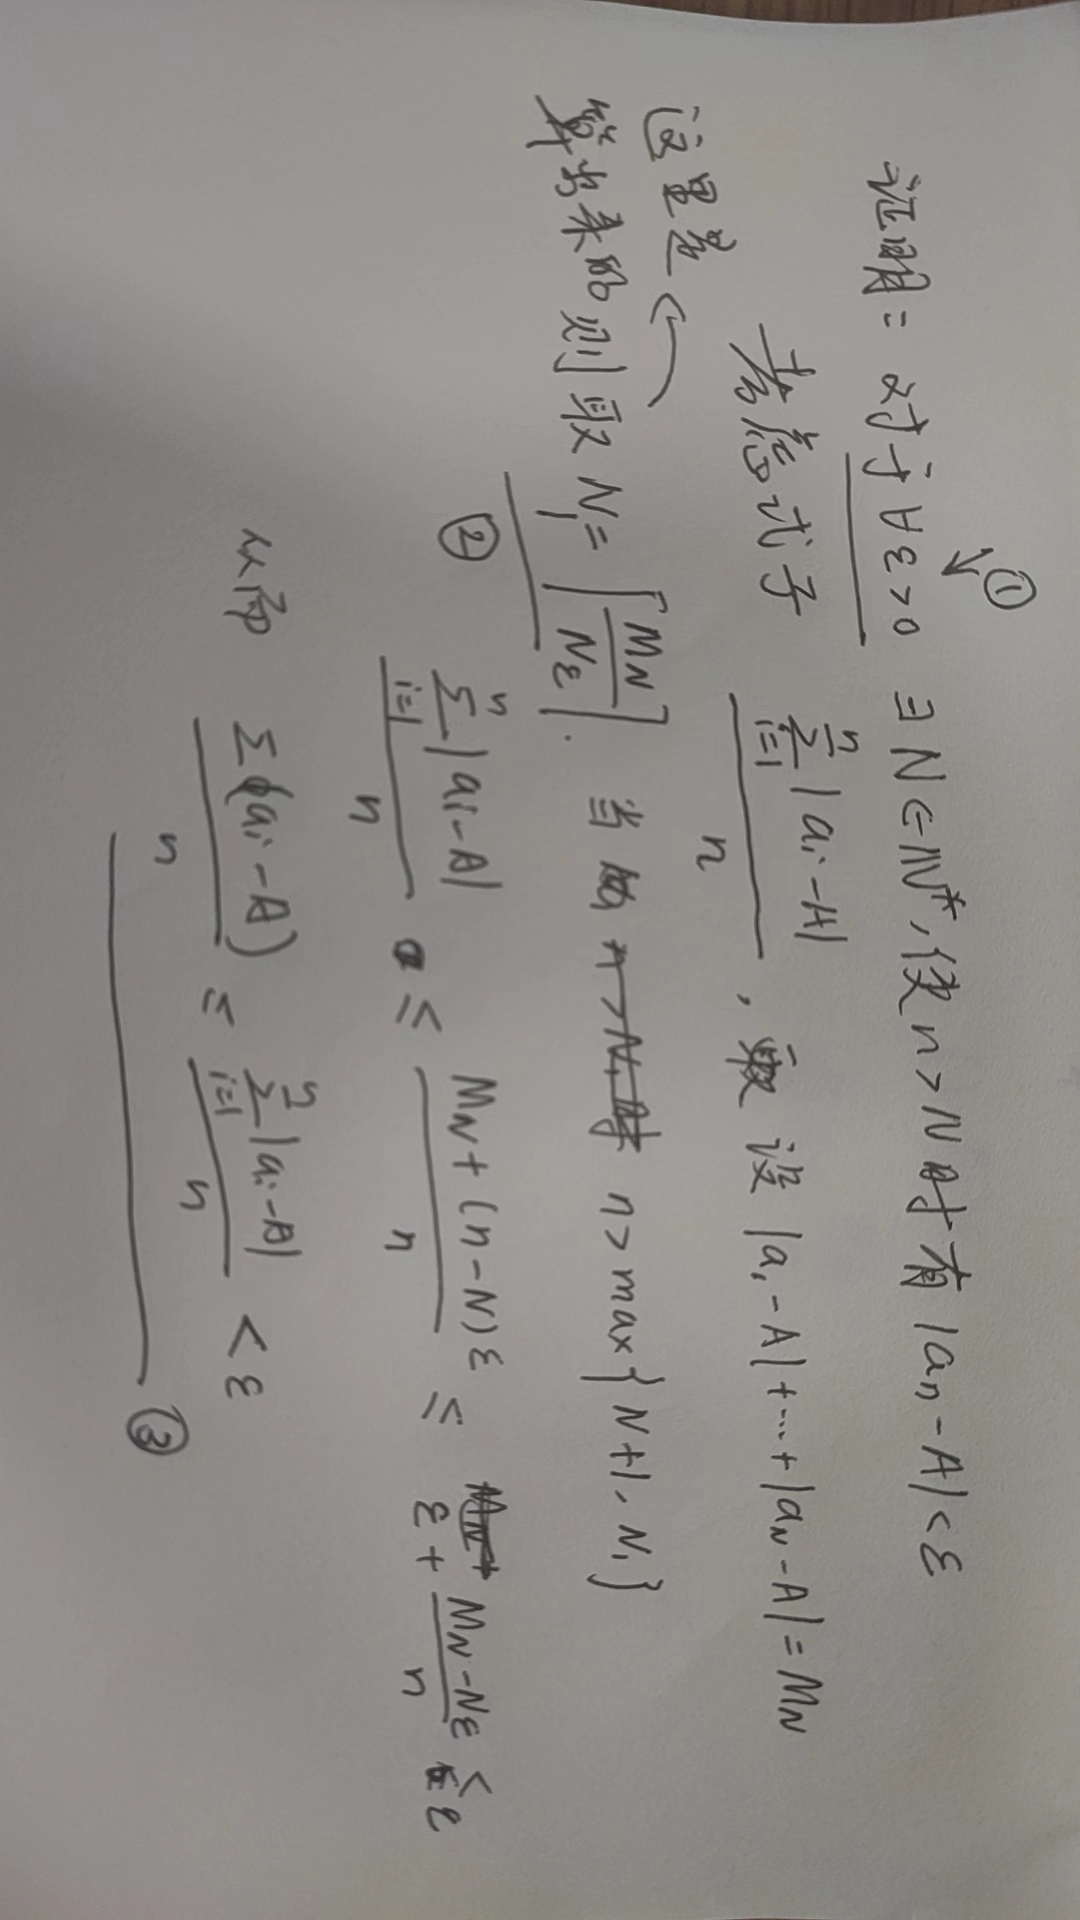 ①
证明: 对于∀ε>0 ∃N∈N*,使n>N时有|aₙ-A|<ε
考虑式子 \frac{\sum_{i=1}^{n}|aᵢ-A|}{n}, 取 设|a₁-A|+…+|a_N-A|=M_N
这里是
算出来的 则取 N₁=⌈\frac{M_N}{Nε}⌉. 当 n>N₁时 n>max{N+1, N₁}
②
\frac{\sum_{i=1}^{n}|aᵢ-A|}{n} ≤ \frac{M_N+(n-N)ε}{n} ≤ M_N+ ε+\frac{M_N-Nε}{n} < ε
从而 \frac{Σ(aᵢ-A)}{n} ≤ \frac{\sum_{i=1}^{n}|aᵢ-A|}{n} < ε
③